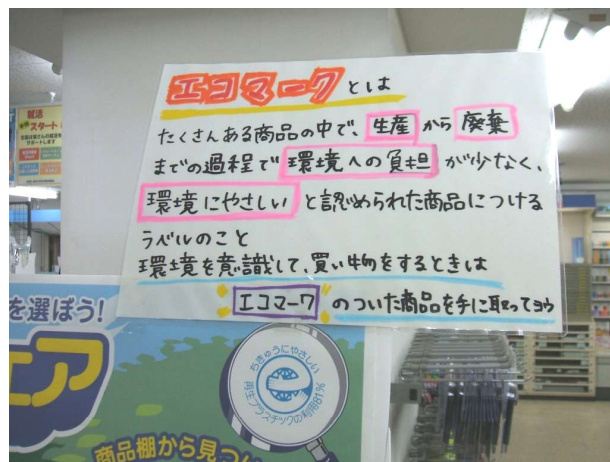 就活
スタート
エコマークとは
たくさんある商品の中で、生産から廃棄
までの過程で環境への負担が少なく、
環境にやさしいと認められた商品につける
ラベルのこと
環境を意識して、買い物をするときは
エコマークのついた商品を手に取ってヨウ
を選ぼう!
ェア
ちきゅうにやさしい
再生プラスチックの利用81%
商品棚から見つ